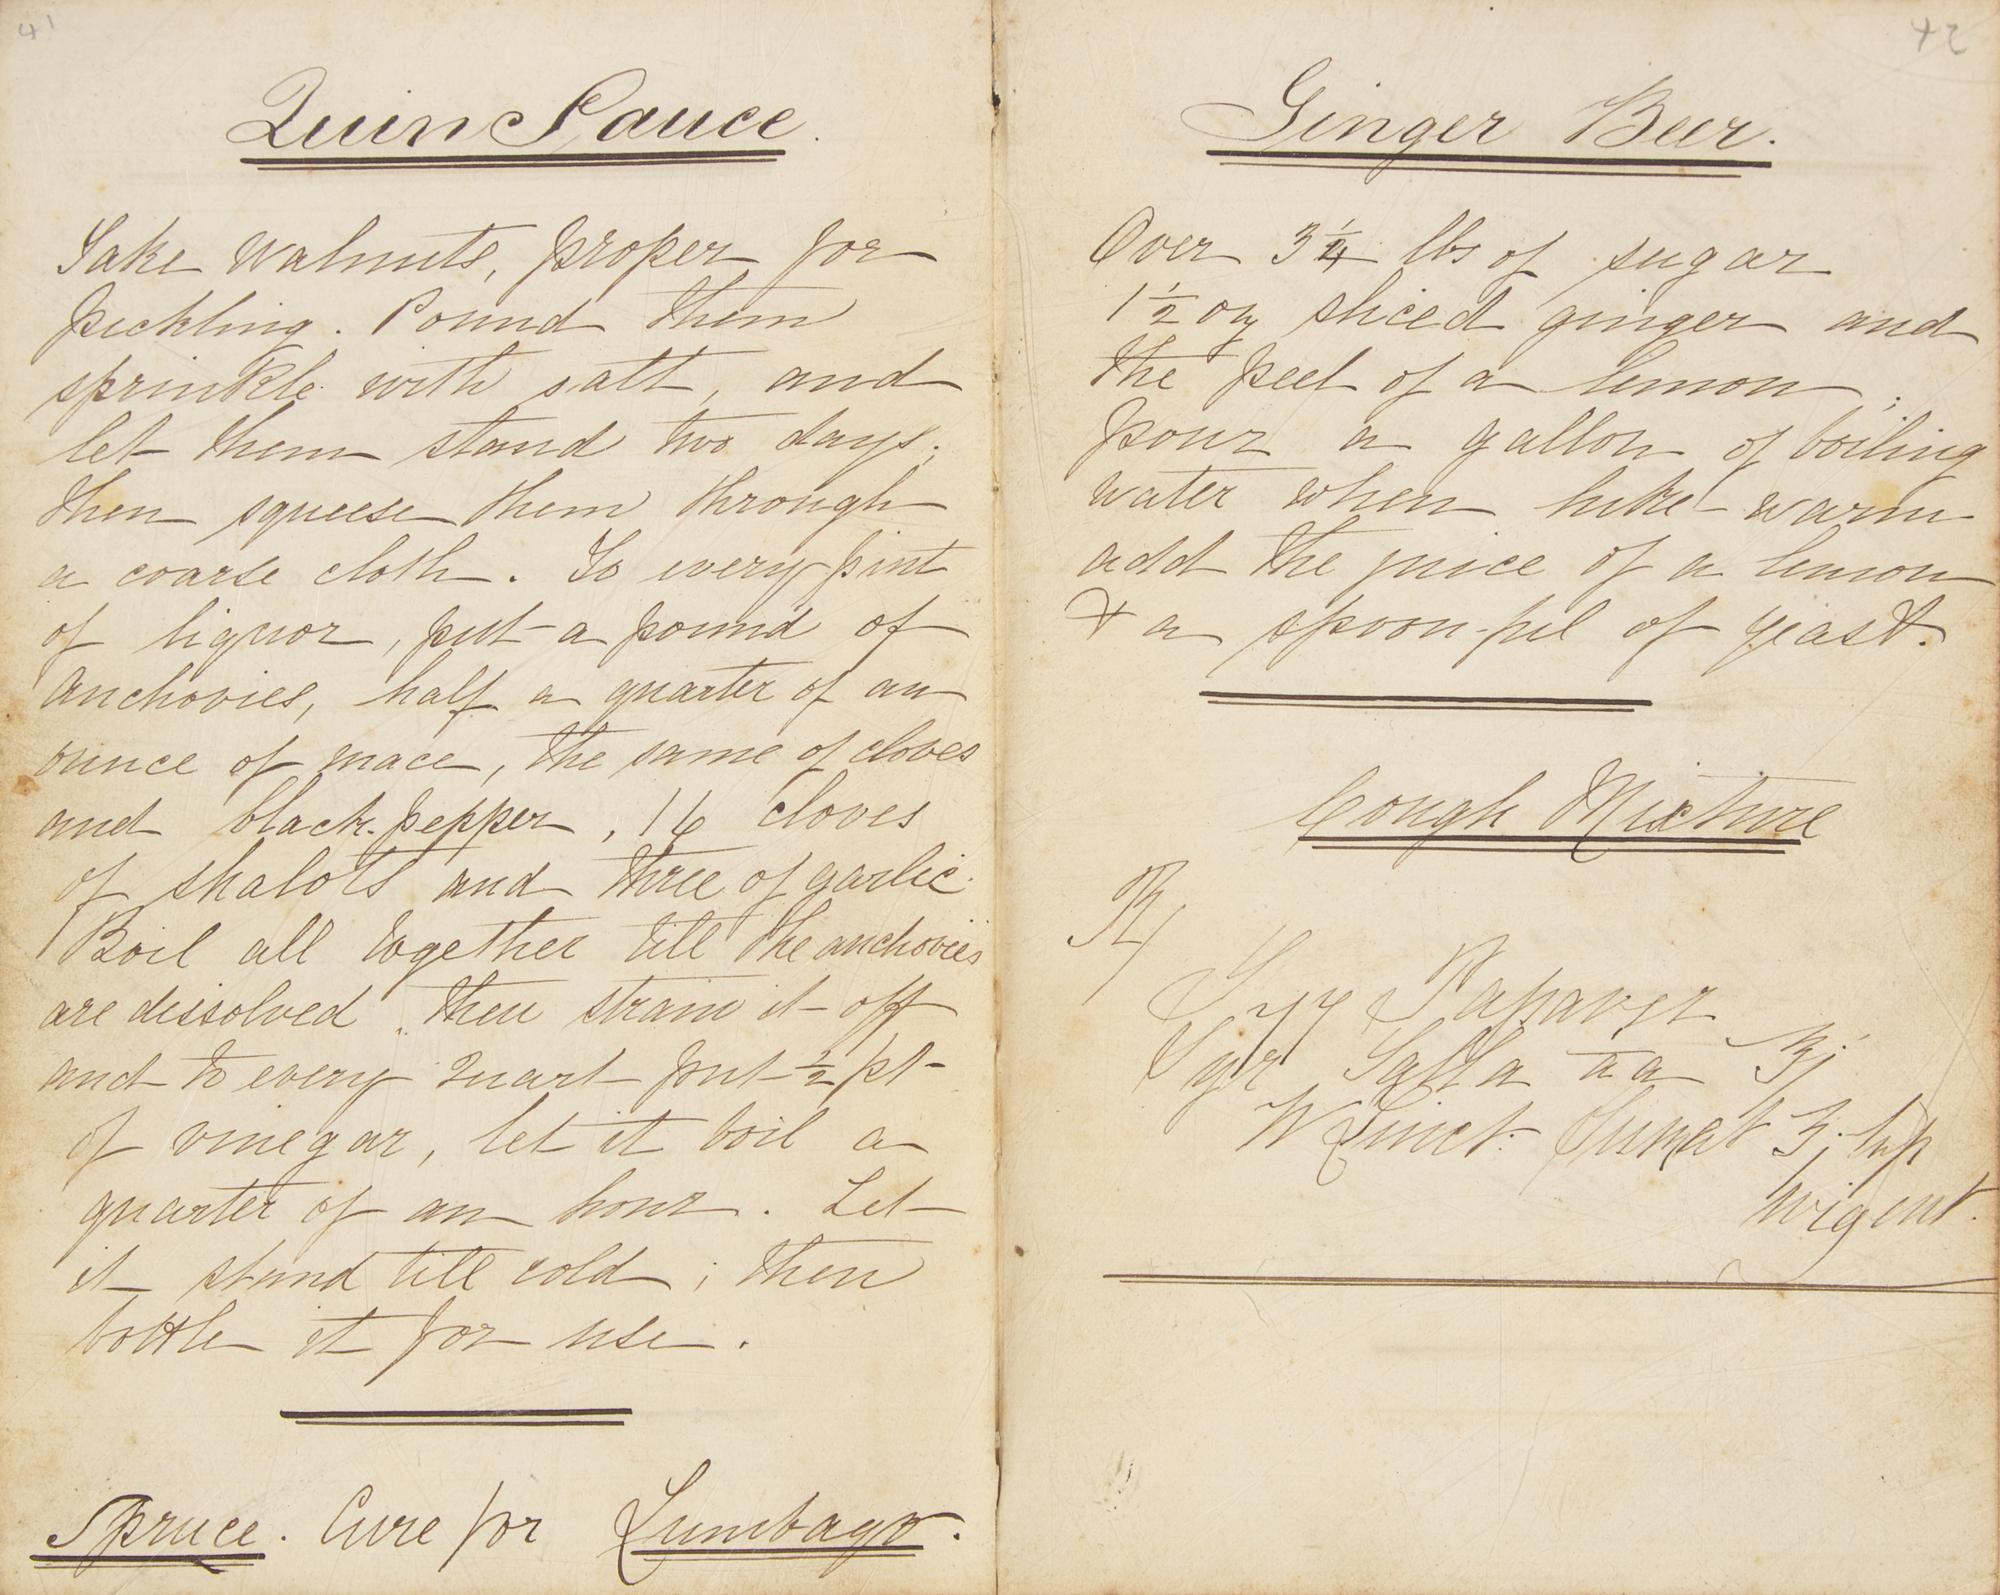 41
Quin Sauce.
Take walnuts, proper for
pickling. Pound them
sprinkle with salt, and
let them stand two days;
then squeese them through
a coarse cloth. To every pint
of liquor, put a pound of
anchovies, half a quarter of an
ounce of mace, the same of cloves
and black pepper, 16 cloves
of shalots and three of garlic.
Boil all together till the anchovies
are dissolved. then strain it off
and to every Quart put ½ pt
of vinegar, let it boil a
quarter of an hour. Let
it stand till cold; then
bottle it for use.
Spruce. Cure for Lumbago.
42
Ginger Beer.
Over 3¼ lbs of sugar
1½ oz sliced ginger and
the peel of a lemon;
pour a gallon of boiling
water when luke-warm
add the juice of a lemon
& a spoon-ful of yeast.
Cough Mixture
℞
Syr Papaver
Syr aa ʒj
Linct. Sumat ʒj
urgent.